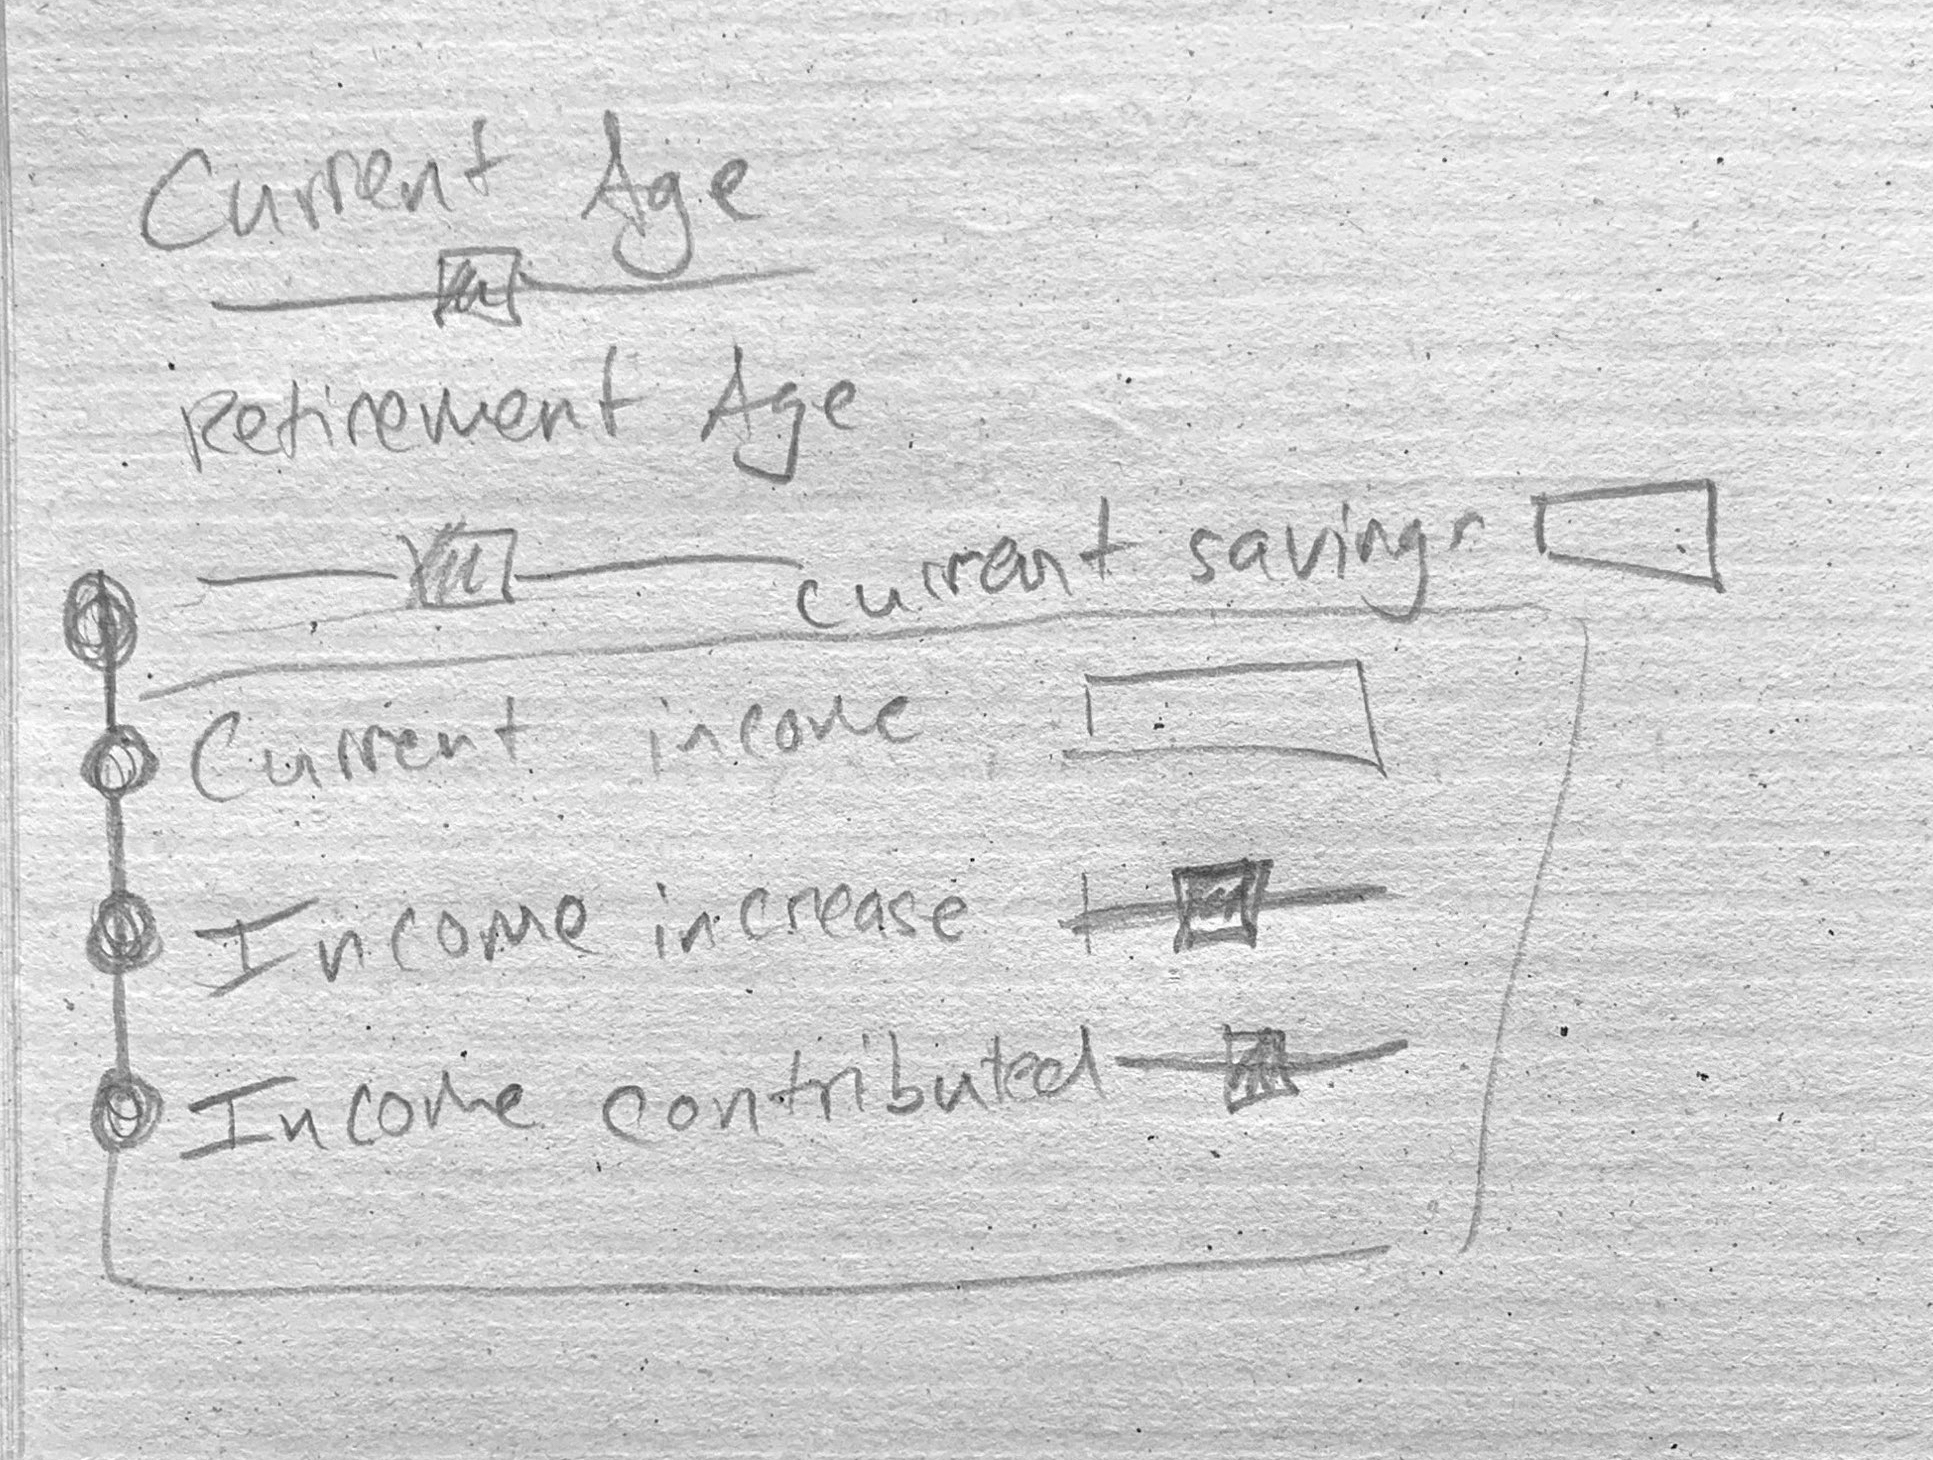 Current Age
Retirement Age
current savings
Current income
Income increase
Income contributed